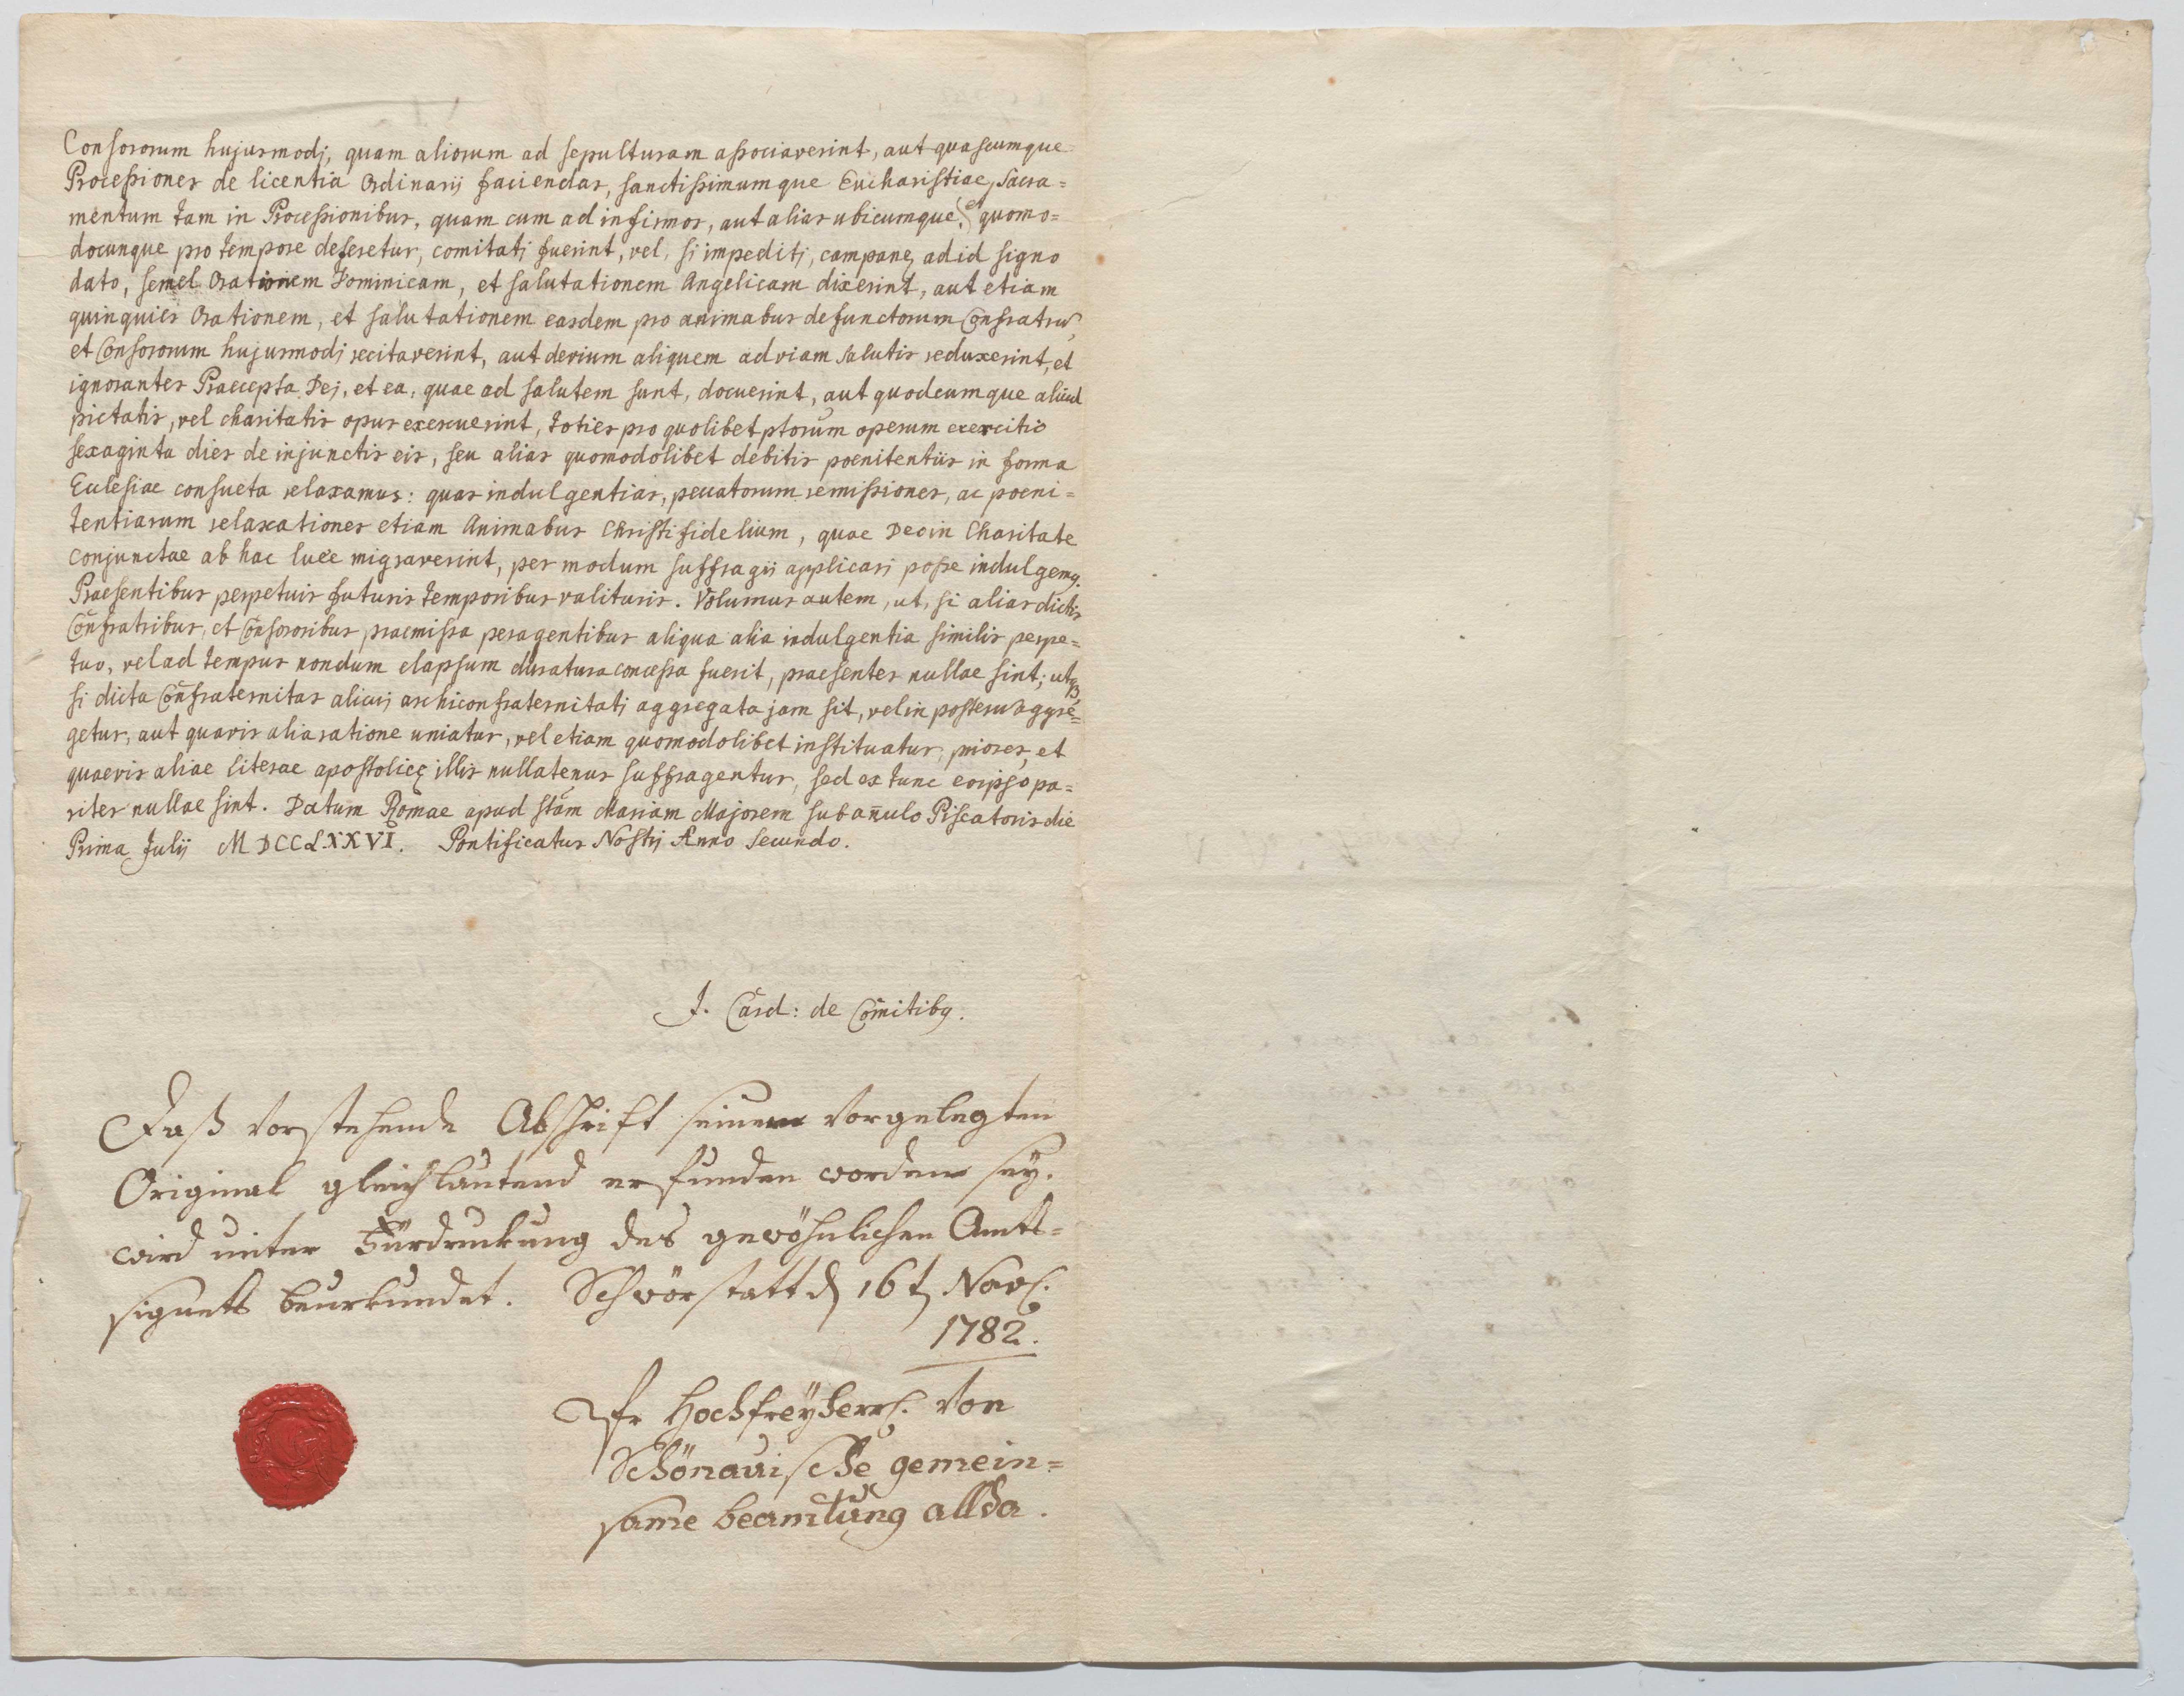 Consororum hujusmodj, quam aliorum ad sepulturam associaverint, aut quascumque
Processiones de licentia Ordinarij faciendas, sanctissimumque Eucharistiae Sacra=
mentum tam in Processionibus, quam cum ad infirmos, aut alias ubicumque, et quomo=
docunque pro tempore deferetur, comitatj fuerint, vel, si impeditj, campanę ad id signo
dato, semel Orationem Dominicam, et salutationem Angelicam dixerint, aut etiam
quinquies Orationem, et salutationem easdem pro animabus defunctorum Confratrū,
et Consororum hujusmodj recitaverint, aut devium aliquem ad viam salutis reduxerint, et
ignorantes Praecepta Dej, et ea, quae ad salutem sunt, docuerint, aut quodcumque aliud
pietatis, vel charitatis opus exercuerint, toties pro quolibet ptorum operum exercitio
sexaginta dies de injunctis eis, seu alias quomodolibet debitis poenitentiis in forma
Ecclesiae consueta relaxamus: quas indulgentias, peccatorum remissiones, ac poeni=
tentiarum relaxationes etiam Animabus Christifidelium, quae Deo in Charitate
conjunctae ab hac luce migraverint, per modum suffragii applicari posse indulgemꝰ.
Praesentibus perpetuis futuris temporibus valituris. Volumus autem, ut, si alias dictis
Confratribus, et Consororibus praemissa peragentibus aliqua alia indulgentia similis perpe=
tuo, vel ad tempus nondum elapsum duratura concessa fuerit, praesentes nullae sint; utqꝫ
si dicta Confraternitas alicuj archiconfraternitatj aggregata jam sit, vel in posterū aggre=
getur, aut quavis alia ratione uniatur, vel etiam quomodolibet instituatur, priores, et
quaevis aliae literae apostolicę illis nullatenus suffragentur, sed ex tunc eo ipso pa=
riter nullae sint. Datum Romae apud Stam Mariam Majorem sub an̄ulo Piscatoris die
Prima Julij MDCCLXXVI. Pontificatus Nostrj Anno Secundo.
J. Card: de Comitibꝰ.
Daß vorstehende Abschrift seinem vorgelegten
Original gleichlautend erfunden worden sey.
wird unter Fürdruckung des gewöhnlichen Amts=
signets beurkundet. Schwörstatt d 16t Nov.
1782.
Hochfreyherrl. von
Schönauische gemein=
same beamtung allda.